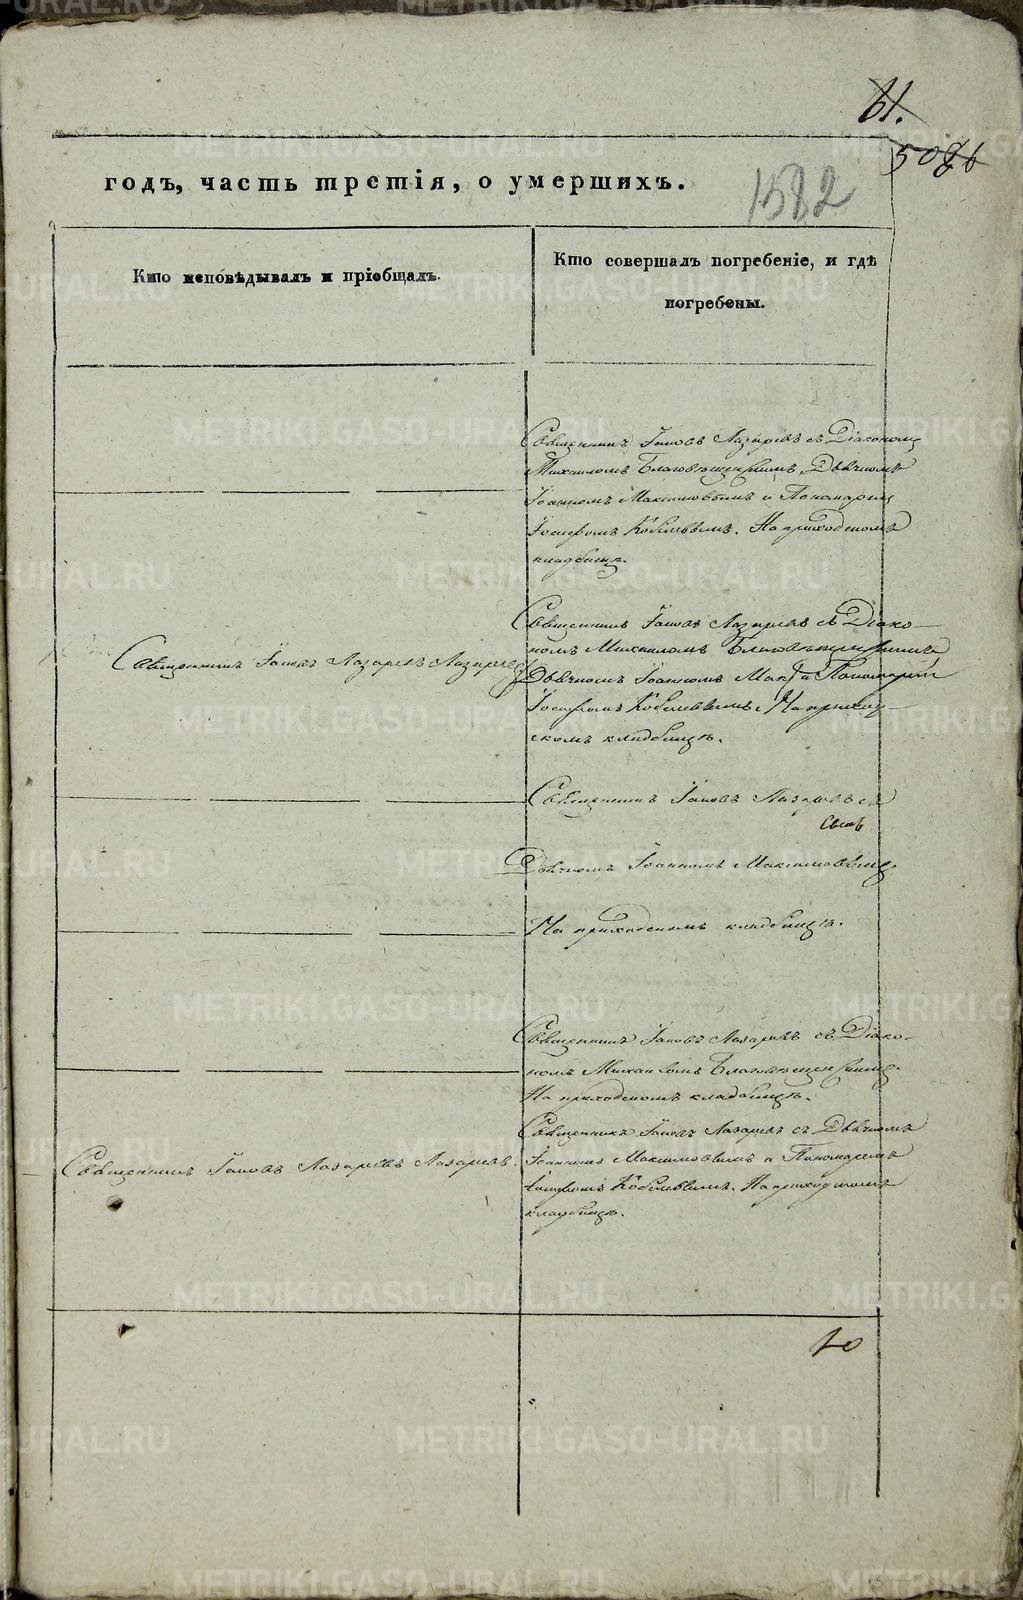 61.
годъ, часть третія, о умершихъ.
1582
Кто исповѣдывалъ и пріобщалъ.
Кто совершалъ погребеніе, и гдѣ
погребены.
Священникъ Іаковъ Лазаревъ съ Діакономъ
Михаиломъ Благовѣщенскимъ, Дьячкомъ
Іоанномъ Максимовымъ и Пономаремъ
Іосифомъ Кобелевымъ. На приходскомъ
кладбищѣ.
Священникъ Іаковъ Лазаревъ съ Діако-
номъ Михаиломъ Благовѣщенскимъ
Священникъ Іаковъ Лазаревъ Лазаревъ
Дьячкомъ Іоанномъ Мак и Пономаремъ
Іосифомъ Кобелевымъ. На приход-
скомъ кладбищѣ.
Священникъ Іаковъ Лазаревъ съ
Дьячкомъ Іоанномъ Максимовымъ
На приходскомъ кладбищѣ.
Священникъ Іаковъ Лазаревъ съ Діако-
номъ Михаиломъ Благовѣщенскимъ.
На приходскомъ кладбищѣ.
Священникъ Іаковъ Лазаревъ съ Дьячкомъ
Священникъ Іаковъ Лазаревъ Лазаревъ.
Іоанномъ Максимовымъ и Пономаремъ
Іосифомъ Кобелевымъ. На приходскомъ
кладбищѣ.
10
METRIKI.GASO-URAL.RU